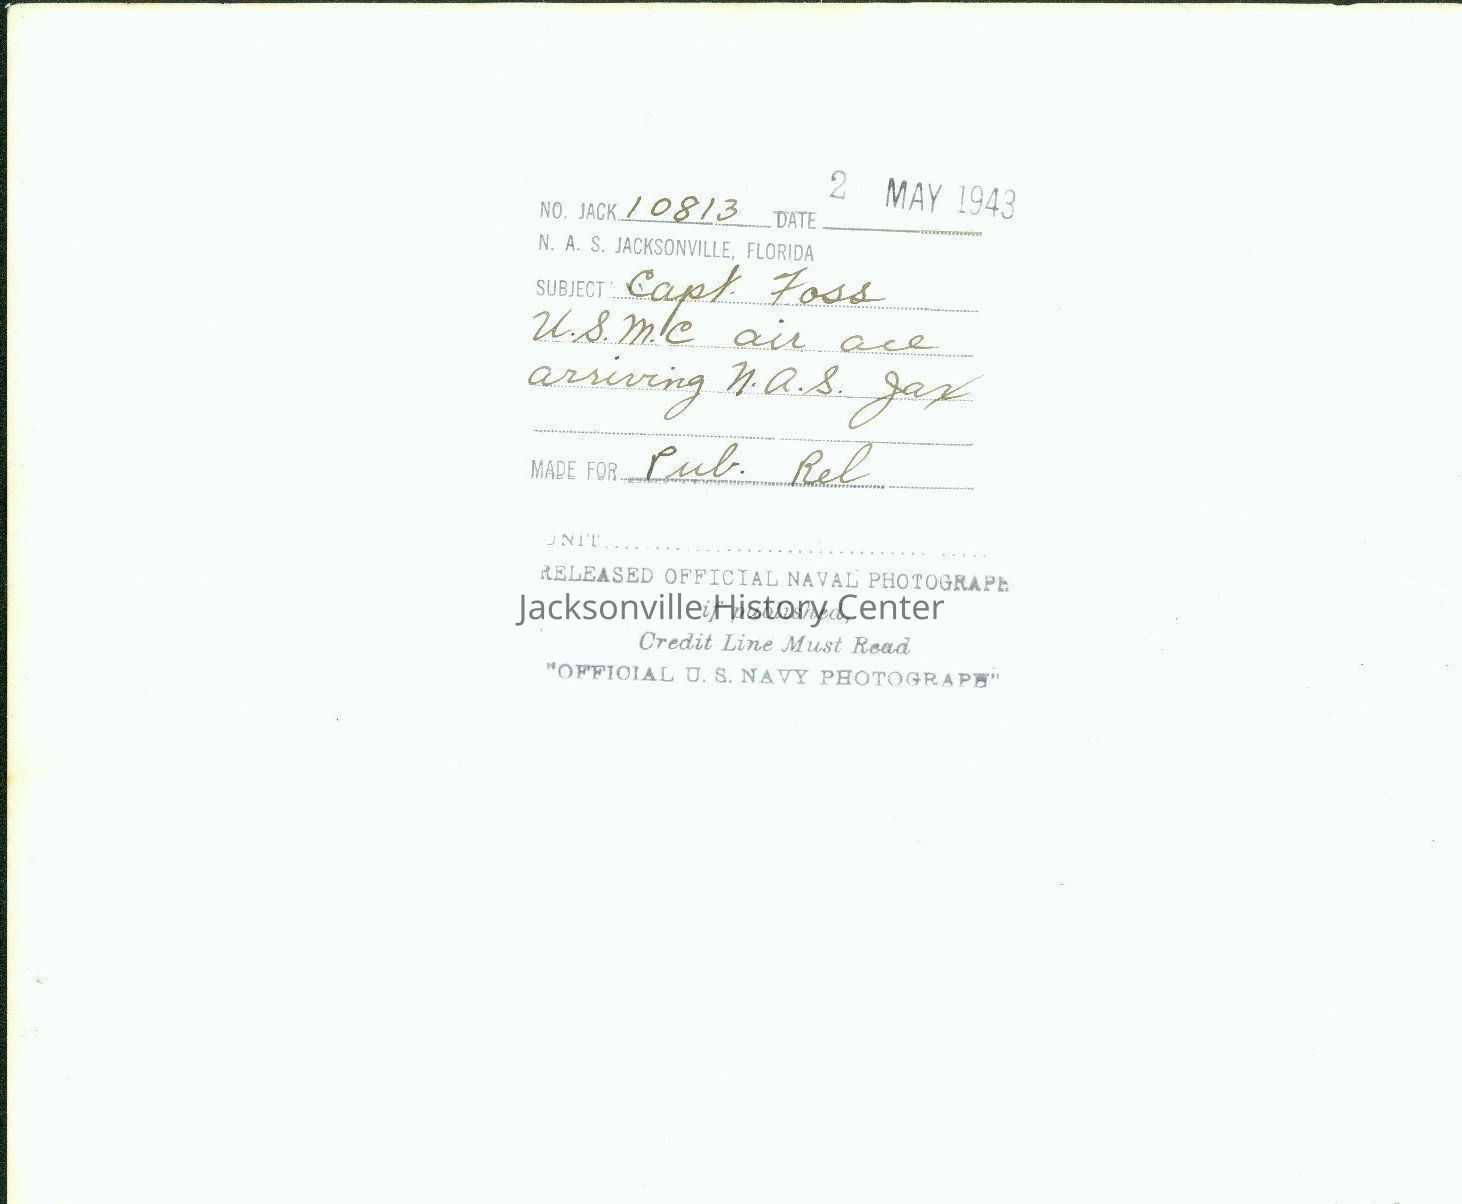 2 MAY 1943
NO. JACK 10813 DATE
N. A. S. JACKSONVILLE, FLORIDA
SUBJECT Capt. Foss
U.S.M.C air ace
arriving N.A.S. Jax
MADE FOR Pub. Rel
UNIT
RELEASED OFFICIAL NAVAL PHOTOGRAPH
if published,
Jacksonville History Center
Credit Line Must Read
"OFFICIAL U. S. NAVY PHOTOGRAPH"